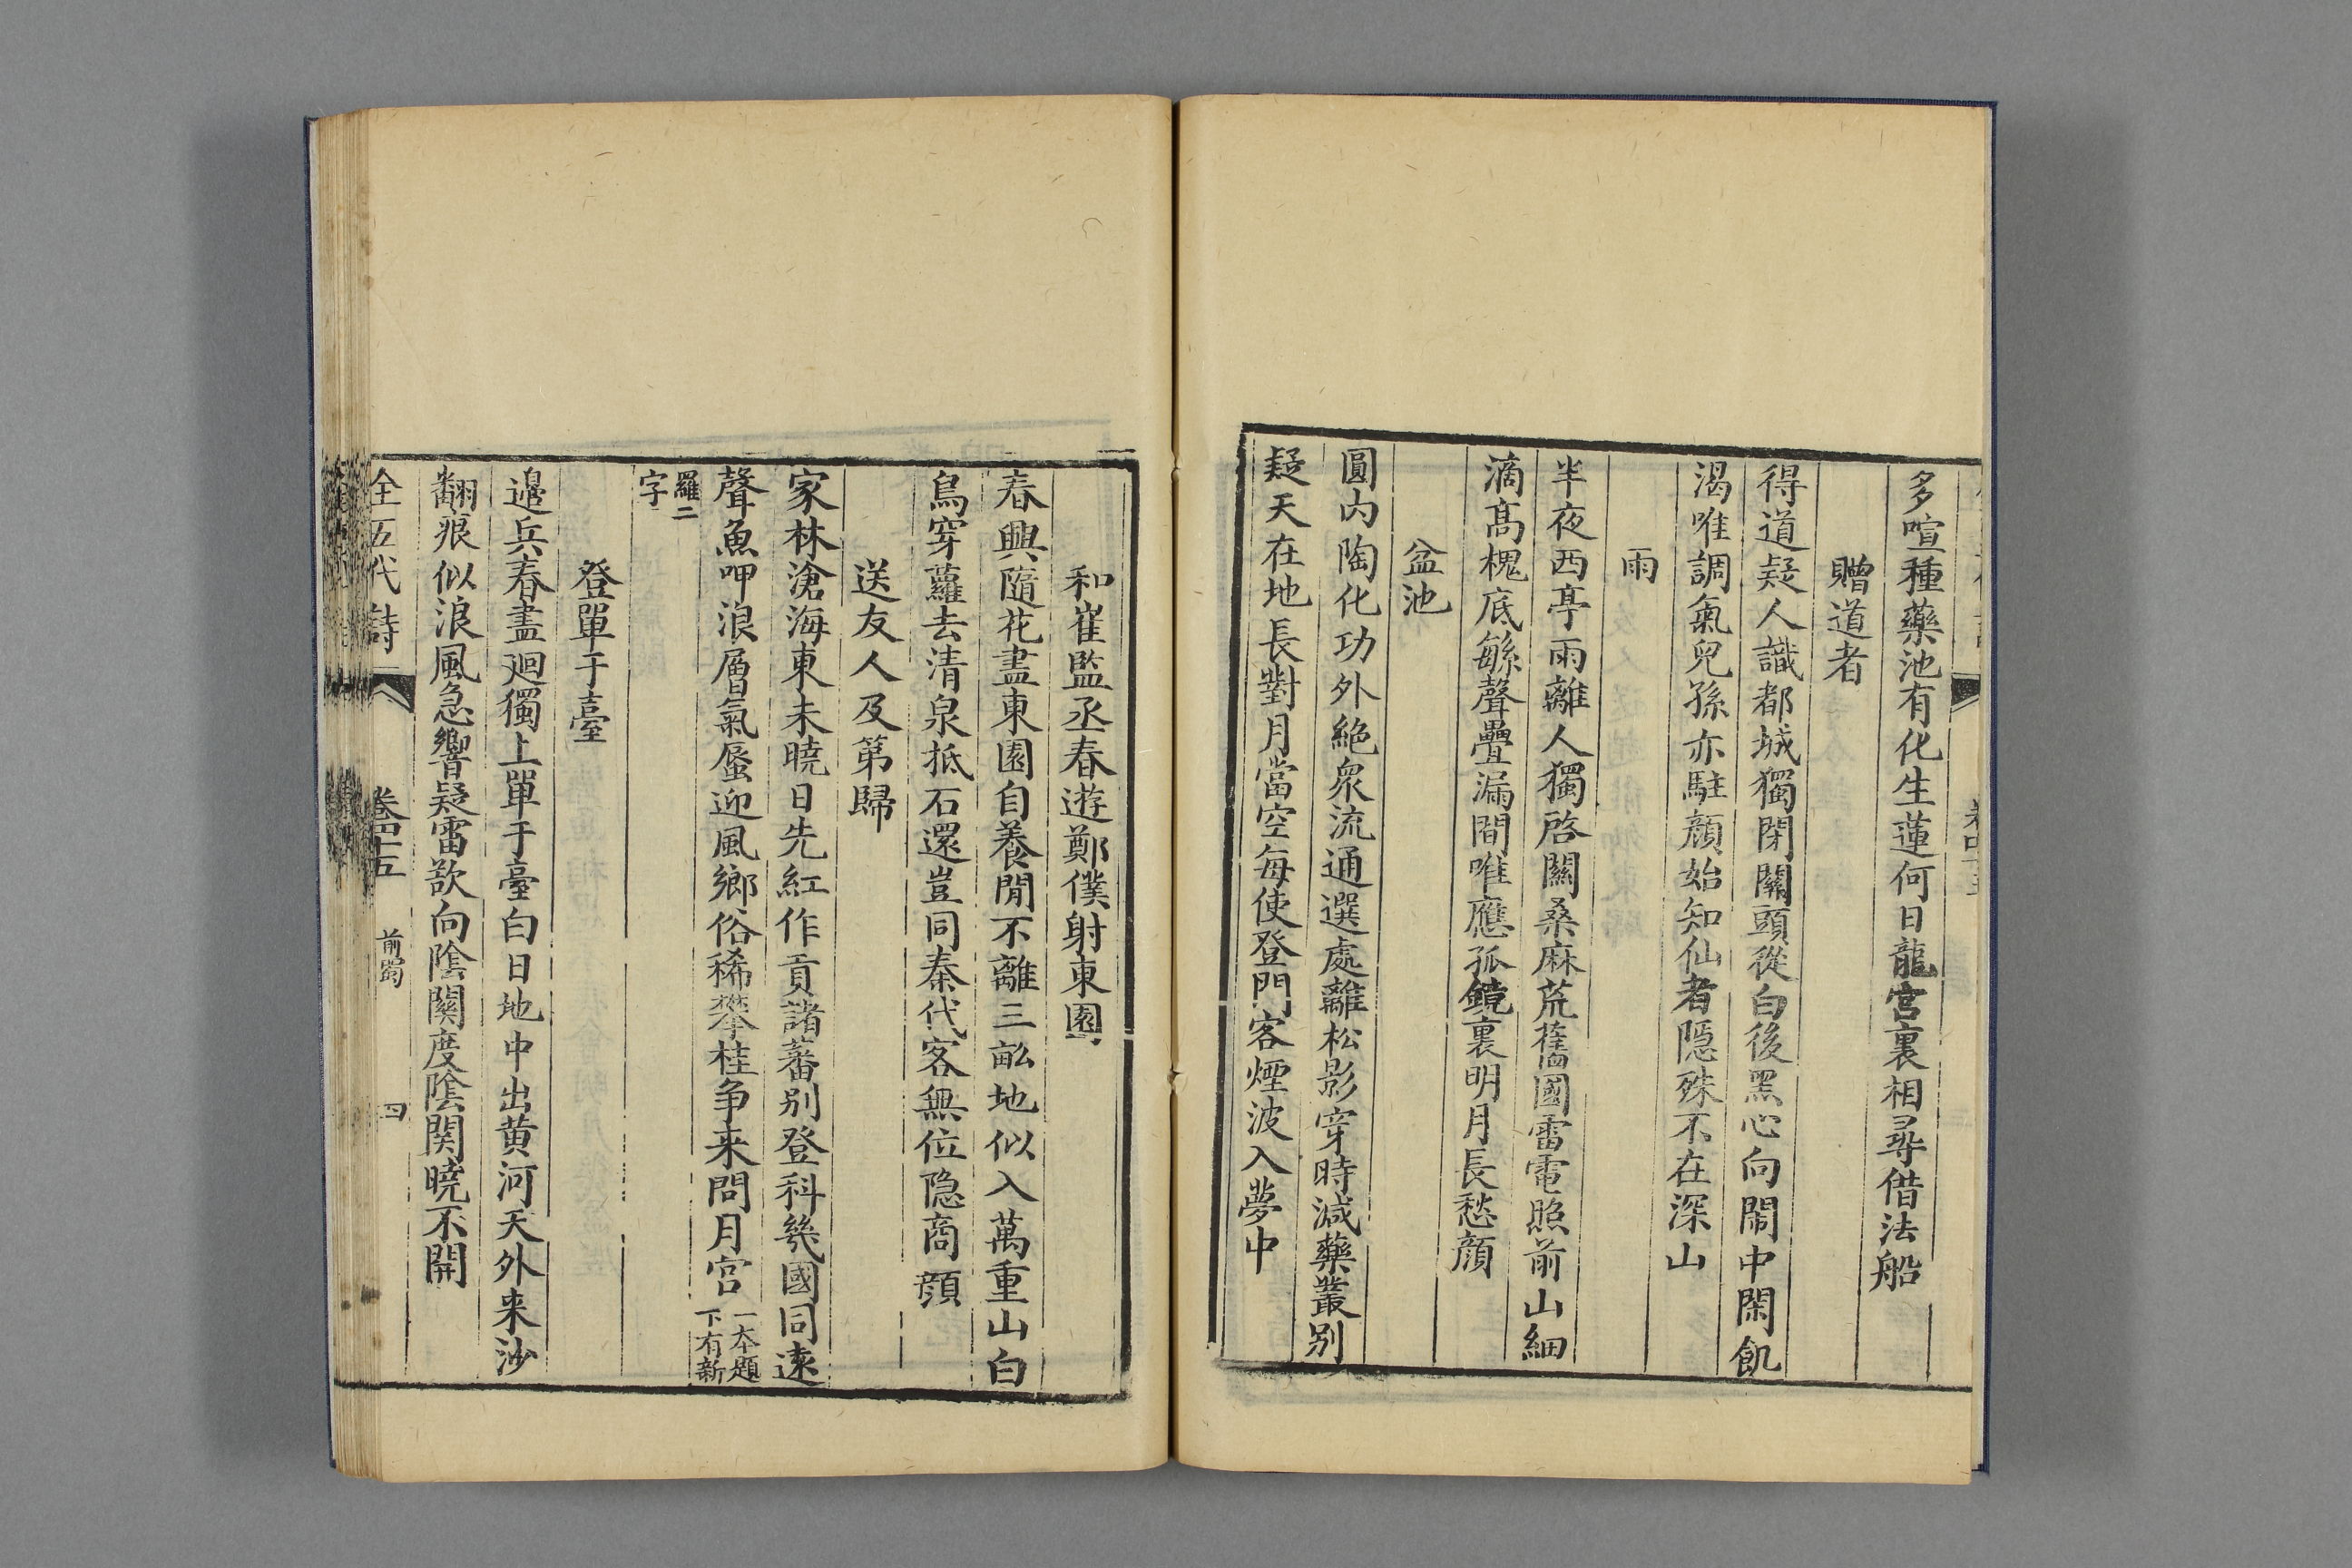 多喧種藥池有化生蓮何日龍宮裏相尋借法船
贈道者
得道疑人識都城獨閉關頭從白後黑心向鬧中閑飢
渴唯調氣兒孫亦駐顔始知仙者隱殊不在深山
雨
半夜西亭雨離人獨啓關桑麻荒舊國雷電照前山細
滴髙槐底繁聲疊漏間唯應孤鏡裏明月長愁顔
盆池
圓内陶化功外絶衆流通選處離松影穿時減藥叢别
疑天在地長對月當空每使登門客煙波入夢中
和崔監丞春遊鄭僕射東園
春興隨花盡東園自養閒不離三畝地似入萬重山白
鳥穿蘿去清泉抵石還豈同秦代客無位隐商顔
送友人及第歸
家林滄海東未曉日先紅作貢諸蕃别登科幾國同遠
聲魚呷浪層氣蜃迎風鄉俗稀攀桂争来問月宫一本題下有新
羅二字
登單于臺
邉兵春盡廻獨上單于臺白日地中出黄河天外来沙
翻痕似浪風急響疑雷欲向陰關度陰関曉不開
全五代詩 卷四十五 前蜀 四